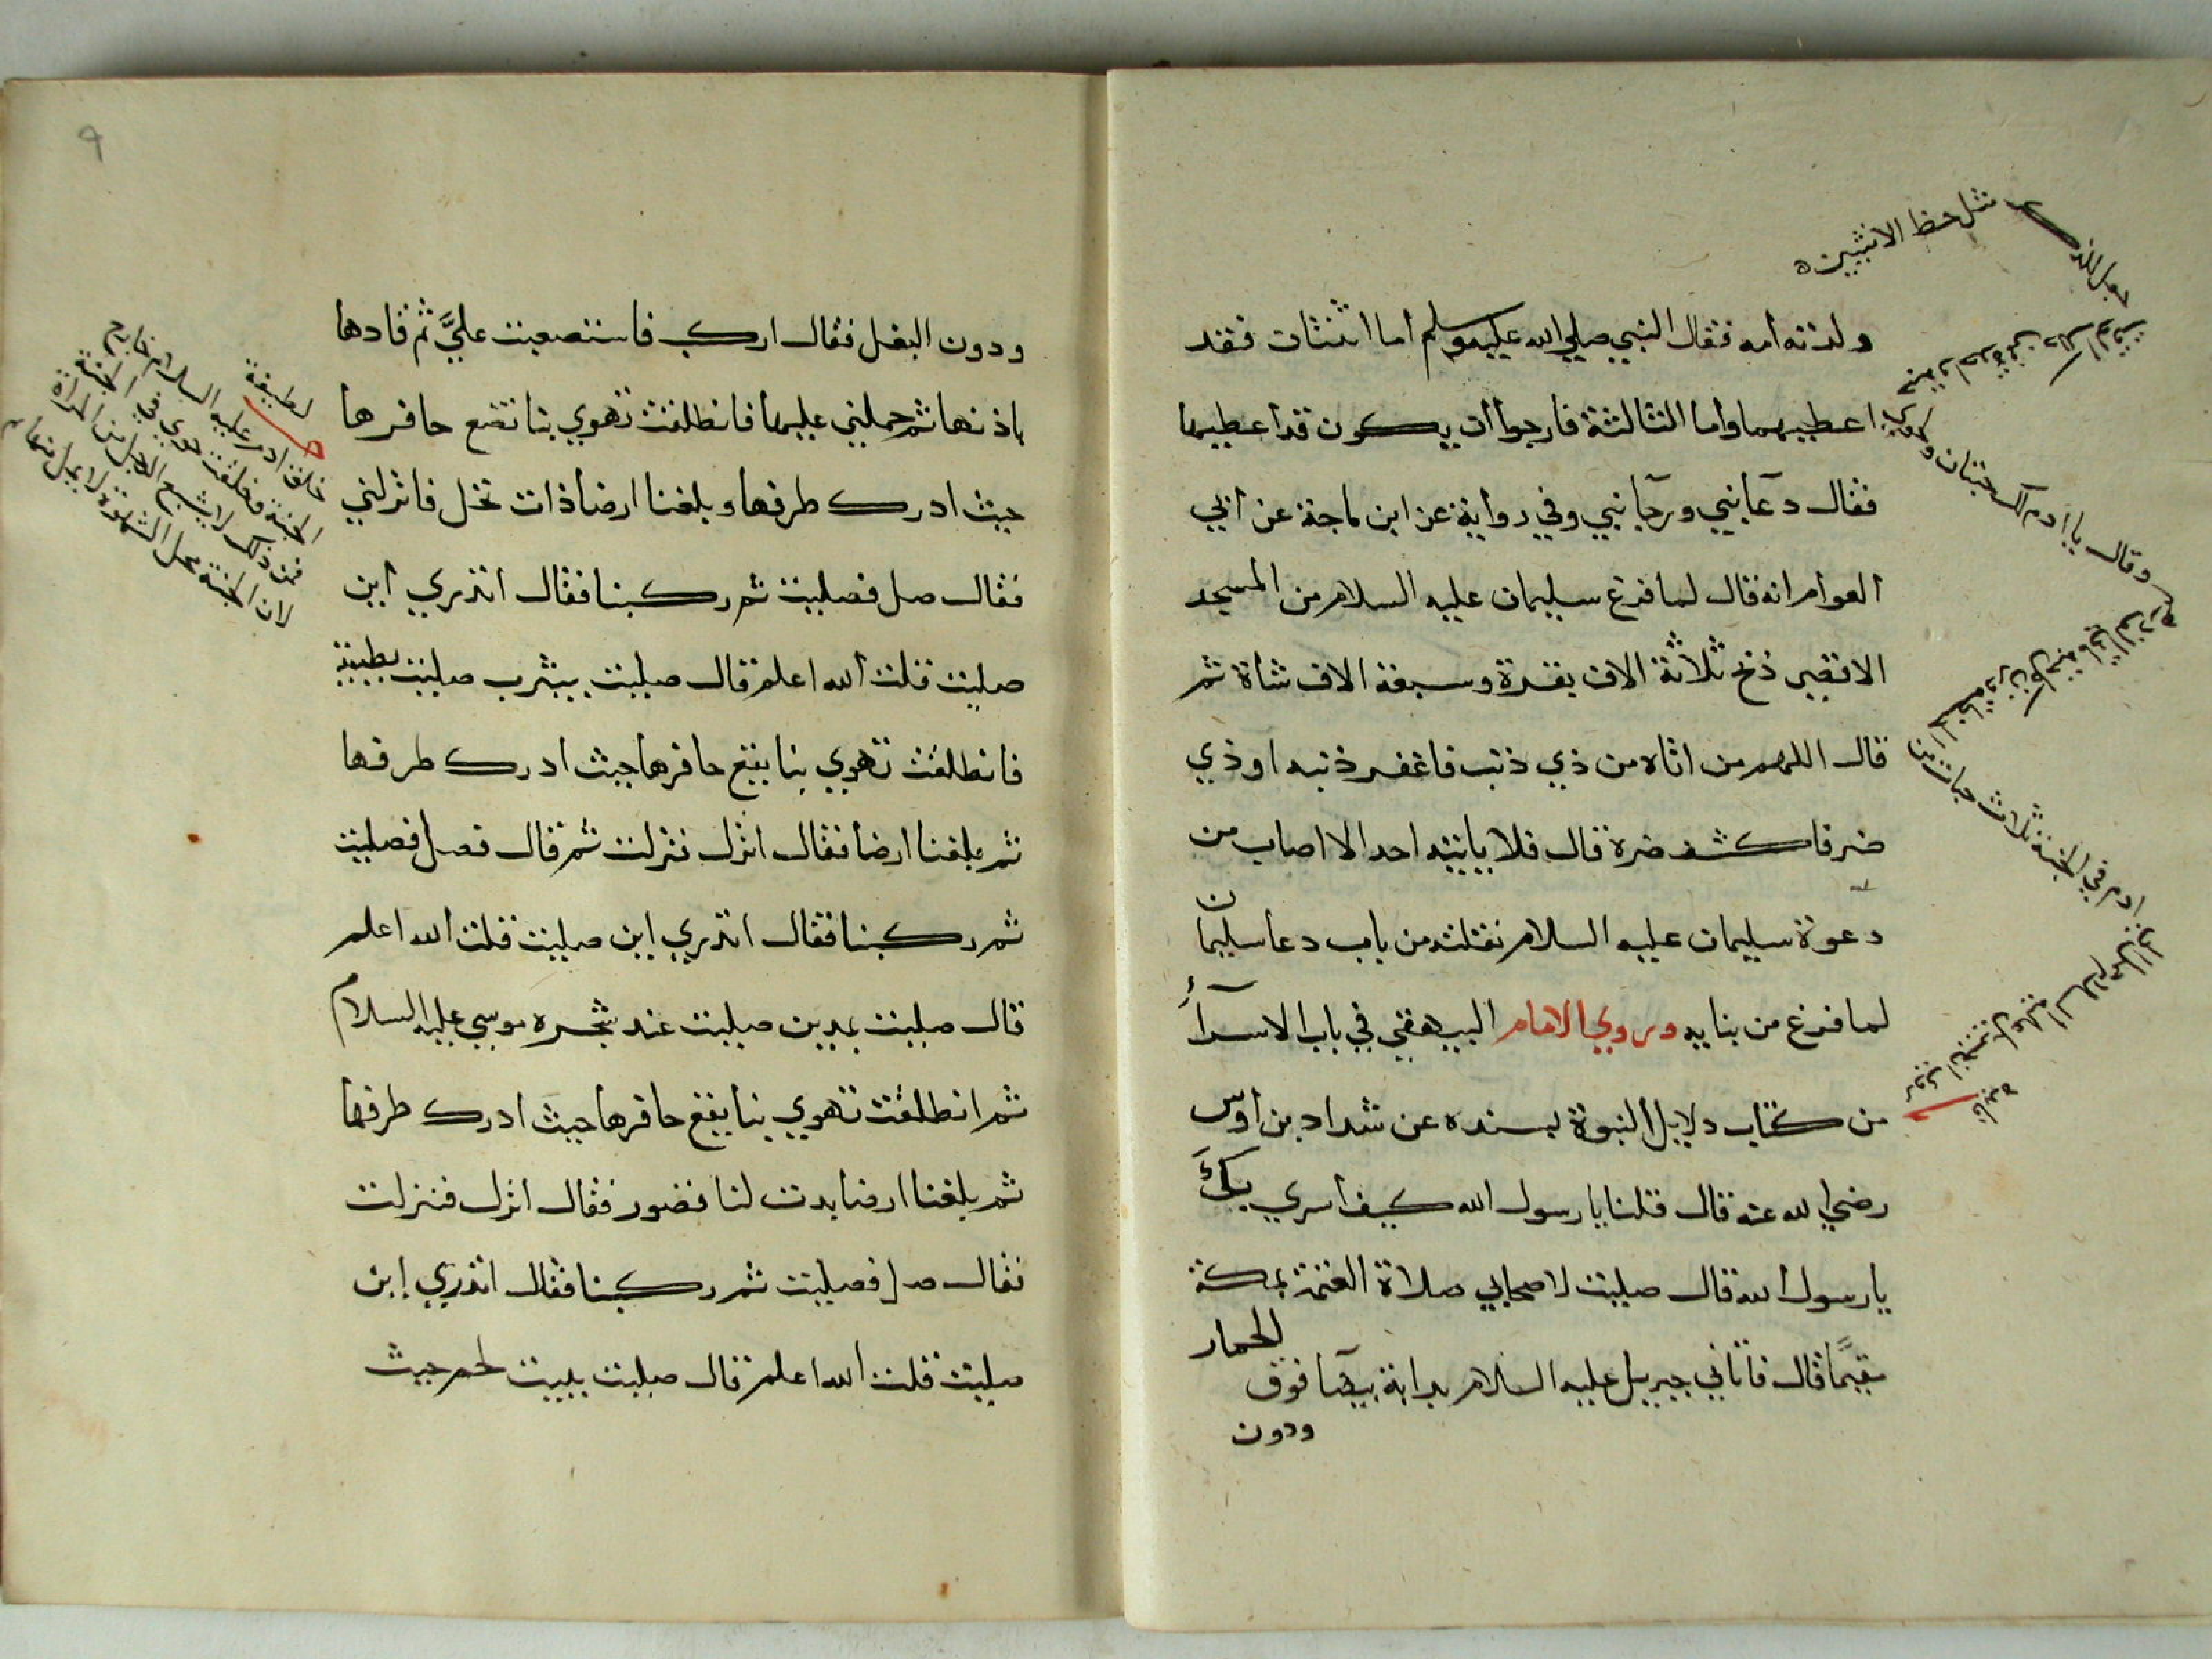 ولدته أمه فقال النبي صلي الله عليه وسلم أما اثنتان فقد
اعطيهما وأما الثالثة فارجوا أن يكون قد اعطيها
فقال دعا نبي ورجا نبي وفي رواية عن ابن ماجة عن أبي
العوام انه قال لما فرغ سليمان عليه السلام من المسجد
الاقصى ذبح ثلاثة الاف بقرة وسبعة الاف شاة ثم
قال اللهم من اتاه من ذي ذنب فاغفر ذنبه او ذي
ضر فاكشف ضره قال فلا ياتيه احد الا اصاب من
دعوة سليمان عليه السلام نقلته من باب دعا سليمان
لما فرغ من بنايه وروي الامام البيهقي في باب الاسرآء
من كتاب دلايل النبوة بسنده عن شداد بن أوس
رضي الله عنه قال قلنا يا رسول الله كيف أسري بك
يا رسول الله قال صليت لاصحابي صلاة العتمة بمكة
مقيمًا قال فاتاني جبريل عليه السلام بدابة بيضا فوق الحمار
ودون
مثل حظ الانثيين
وقال يا ادم لك حبتان
ادم في الجنة ثلاث حبات من
فايدة
ودون البغل فقال اركب فاستصعبت عليَّ ثم فادها
باذنها ثم حملني عليها فانطلقت تهوي بنا تقع حافرها
حيث ادرك طرفها وبلغنا ارضا ذات نخل فانزلني
فقال صل فصليت ثم ركبنا فقال اتدري أين
صليت قلت الله اعلم قال صليت بيثرب صليت بطيبة
فانطلقت تهوي بنا يقع حافرها حيث ادرك طرفها
ثم بلغنا ارضا فقال انزل فنزلت ثم قال فصل فصليت
ثم ركبنا فقال اتدري اين صليت قلت الله اعلم
قال صليت بمدين صليت عند شجره موسي عليه السلام
ثم انطلقت تهوي بنا يقع حافرها حيث ادرك طرفها
ثم بلغنا ارضا بدت لنا قصور فقال انزل فنزلت
فقال صل فصليت ثم ركبنا فقال اتدري اين
صليت قلت الله اعلم قال صليت ببيت لحم حيث
لطيفة
خلق ادم عليه السلام خارج
الجنة وخلقت حوي في الجنة
فمن ذلك لا يشبع الرجل من المراة
لان الجنة محل الشهوة لا يمل
٩